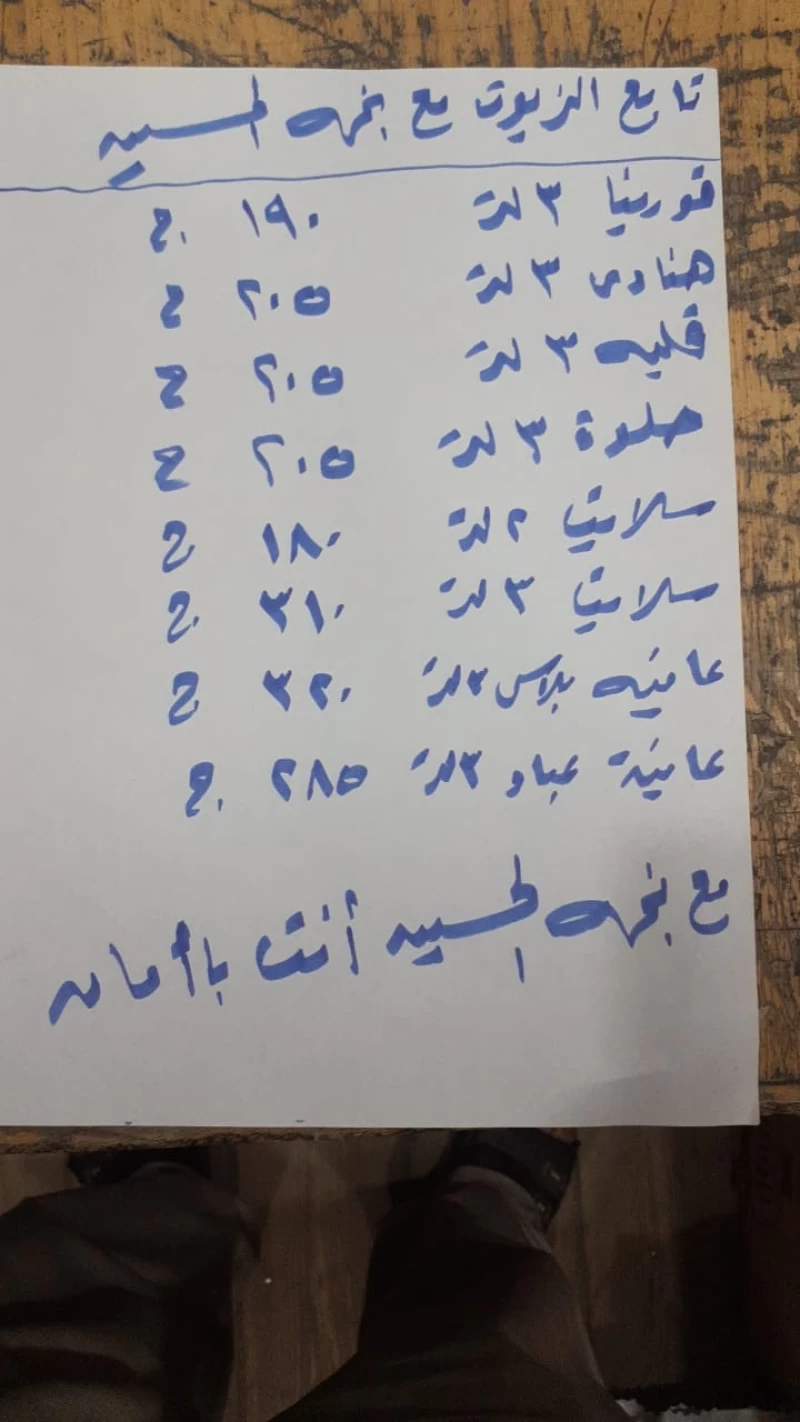 تابع الزيوت مع نجمه الحسين
قورينا ٣ لتر ١٩٠ ج.
هنادى ٣ لتر ٢٠٥ ج
قليه ٣ لتر ٢٠٥ ج
حلوة ٣ لتر ٢٠٥ ج
سلايت ٢ لتر ١٨٠ ج
سلايت ٣ لتر ٣١٠ ج.
عافيه بلاس ٣ لتر ٣٢٠ ج
عافية عباد ٣ لتر ٢٨٥ ج.
مع نجمه الحسين أنت باأمان